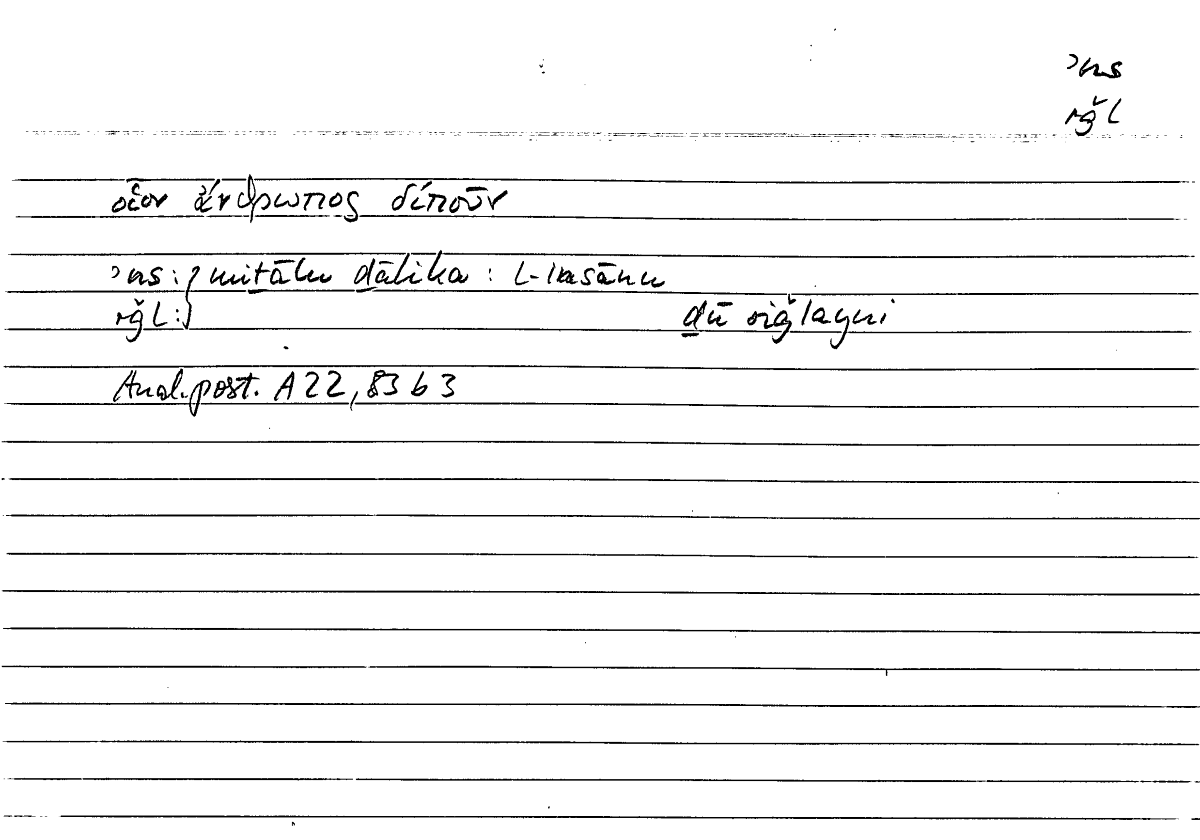 ʾns
rǧl
οἷον ἄνθρωπος δίπουν
ʾns: } miṯālu ḏālika : l-insānu
rǧl: } ḏū riǧlayni
Anal. post. A 22, 83 b 3